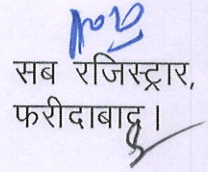 सब रजिस्ट्रार,
फरीदाबाद।